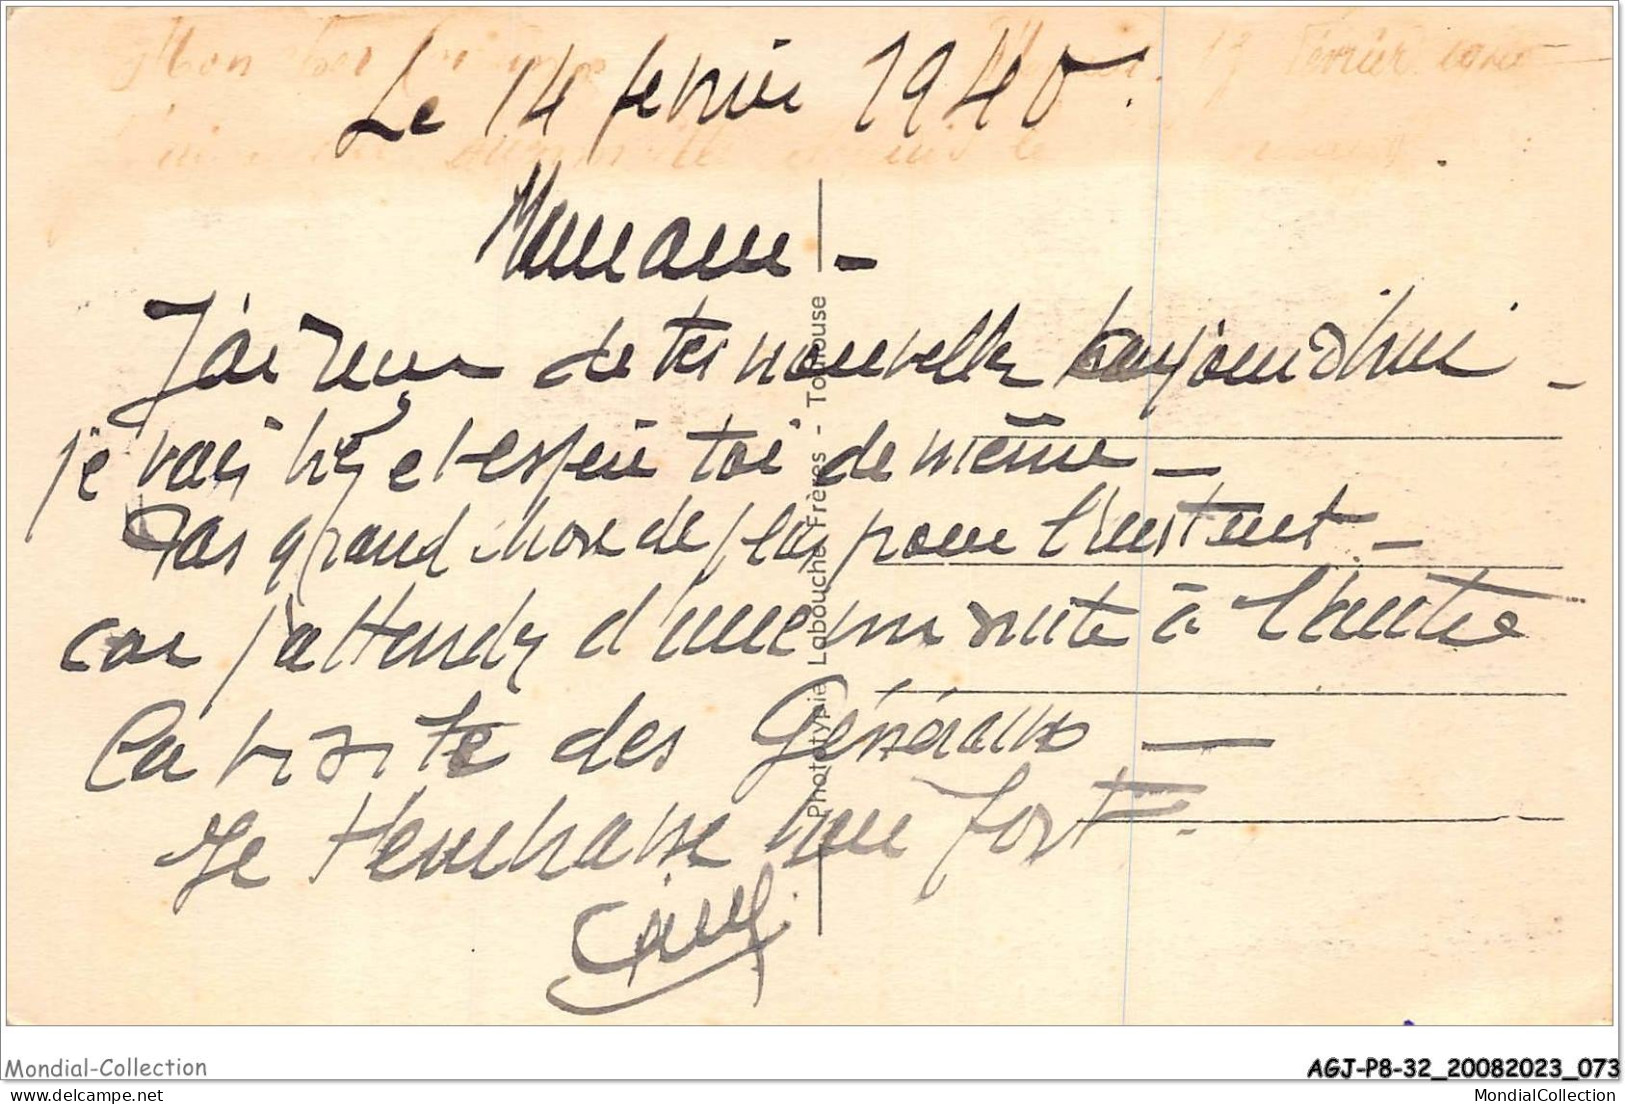 Mon cher                                    17 février
Le 14 fevrier 1940.
Maman -
J'ai reçu de tes nouvelle aujourd'hui -
je vais bien et espère toi de même -
Pas grand chose de plus pour l'instant -
car j'attends d'une minute à l'autre
la visite des Généraux -
Je t'embrasse bien fort.
Phototypie Labouche Frères - Toulouse
Mondial-Collection
AGJ-P8-32_20082023_073
www.delcampe.net
MondialCollection